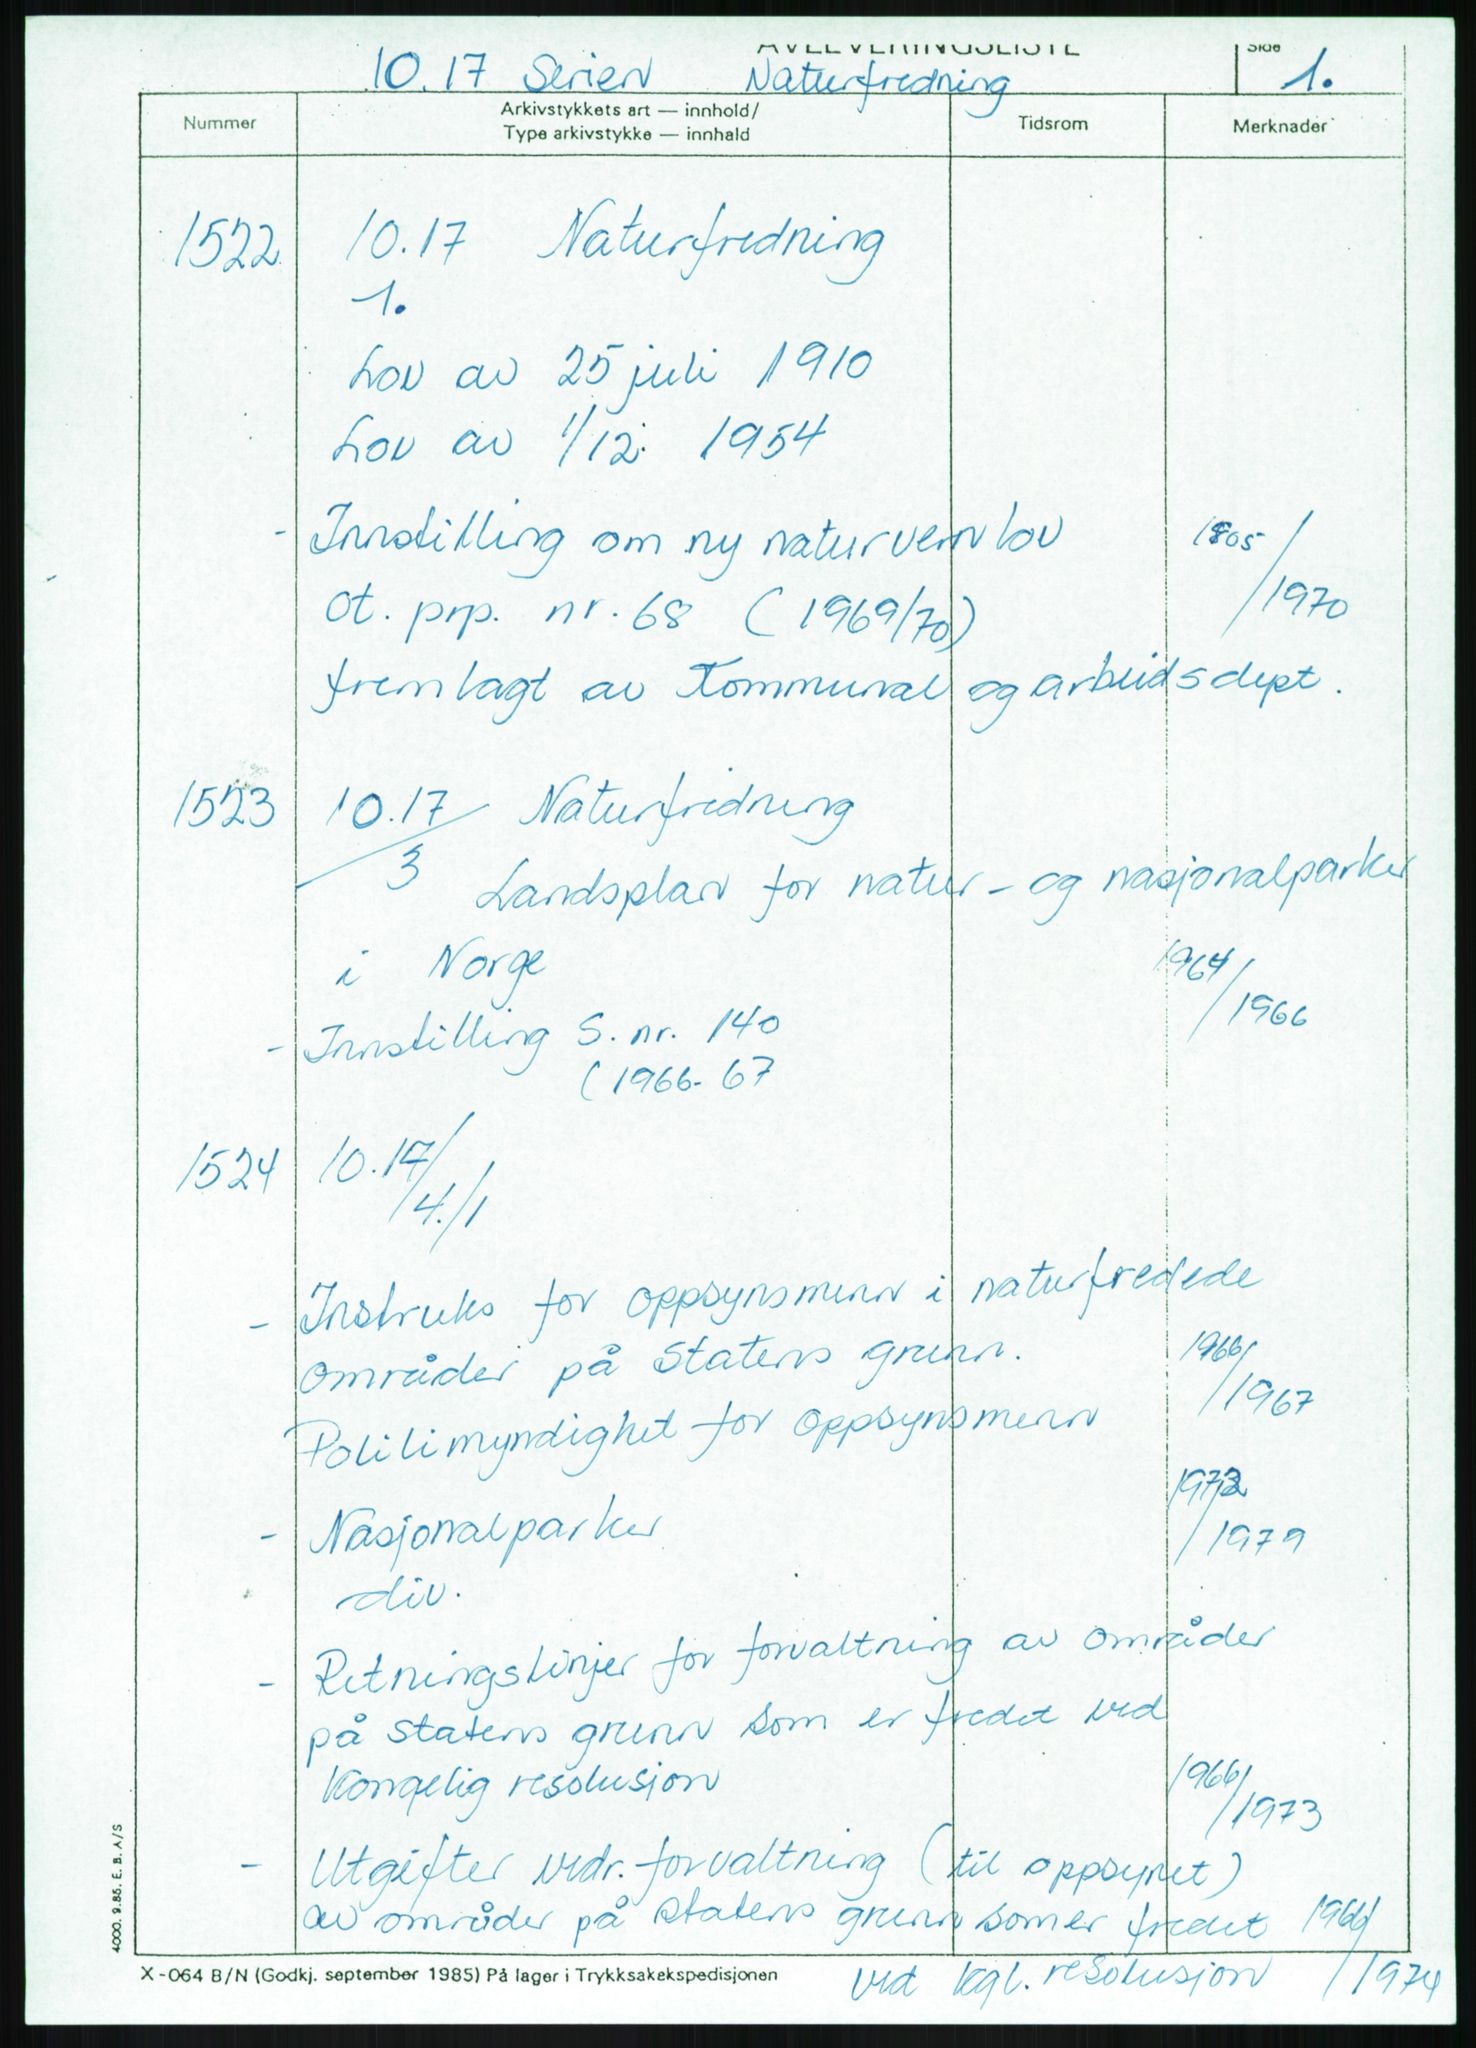 AVLEVERINGSLISTE
Side
10.17 Serien Naturfredning 1.
Nummer
Arkivstykkets art — innhold/
Type arkivstykke — innhald
Tidsrom
Merknader
1522 10.17 Naturfredning
1.
Lov av 25 juli 1910
Lov av 1/12. 1954
- Innstilling om ny naturvernlov 1805/
Ot. prp. nr. 68 (1969/70) /1970
fremlagt av Kommunal og arbeidsdept.
1523 10.17 Naturfredning
/3
Landsplan for natur- og nasjonalparker
i Norge 1964/
/1966
- Innstilling S. nr. 140
(1966-67
1524 10.17/
/4./1
- Instruks for oppsynsmenn i naturfredede
områder på Statens grunn. 1966/
/1967
Politimyndighet for oppsynsmenn
1973
- Nasjonalparker /1979
div.
- Retningslinjer for forvaltning av områder
på statens grunn som er fredet ved
Kongelig resolusjon 1966/
/1973
- Utgifter vedr. forvaltning (til oppsynet)
av områder på statens grunn som er fredet 1966/
ved kgl. resolusjon /1974
X-064 B/N (Godkj. september 1985) På lager i Trykksakekspedisjonen
4000. 9.85. E. B. A/S